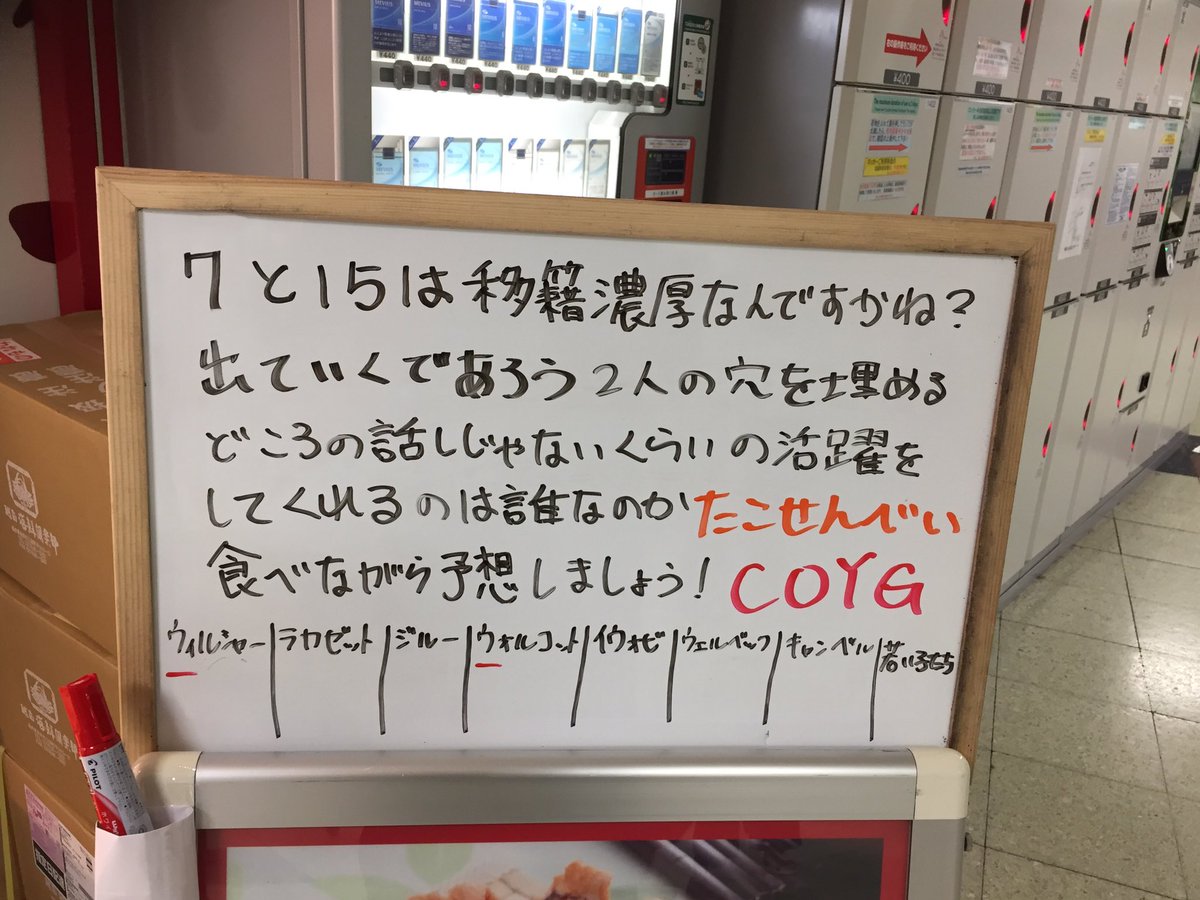 7と15は移籍濃厚なんですかね?
出ていくであろう2人の穴を埋める
どころの話しじゃないくらいの活躍を
してくれるのは誰なのかたこせんべい
食べながら予想しましょう! COYG
ウィルシャー ラカゼット ジルー ウォルコット イウォビ ウェルベック キャンベル 若い子たち
MEVIUS
¥440 ¥440
¥400
PILOT